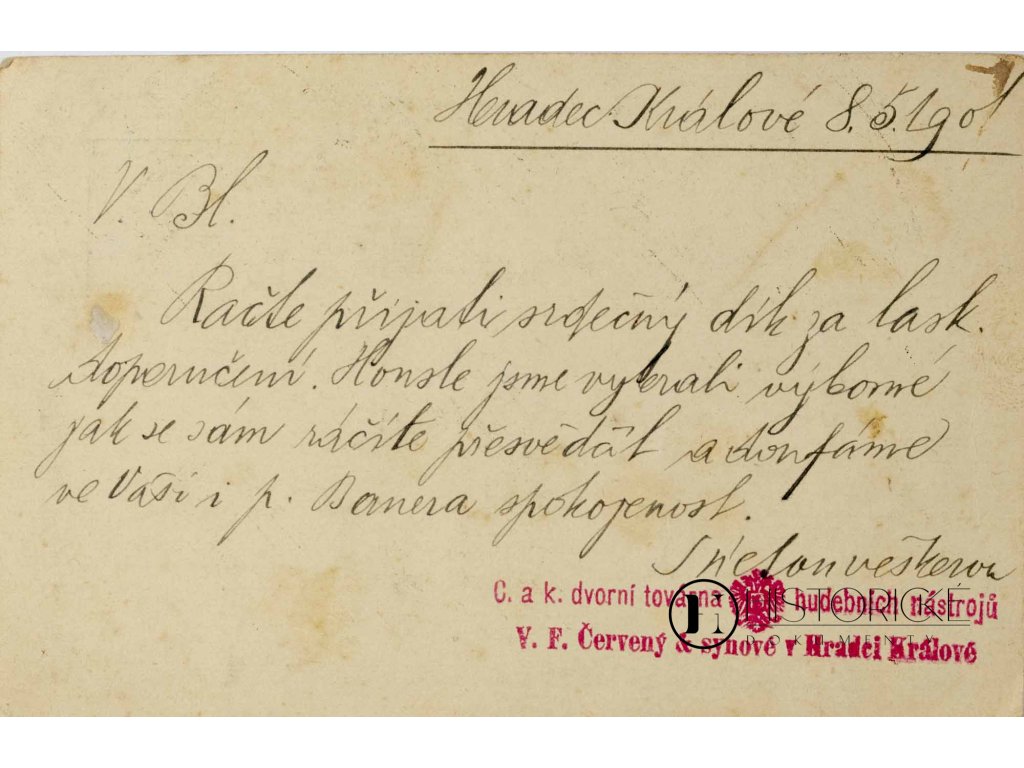 Hradec Králové 8.5.1901
V. Bl.
Račte přijati srdečný dík za lask.
doporučení. Housle jsme vybrali výborné
jak se sám ráčíte přesvědčit a doufáme
ve Vaši i p. Bauera spokojenost.
S úctou veškerou
C. a k. dvorní továrna hudebních nástrojů
HISTORICKÉ
DOKUMENTY
V. F. Červený & synové v Hradci Králové